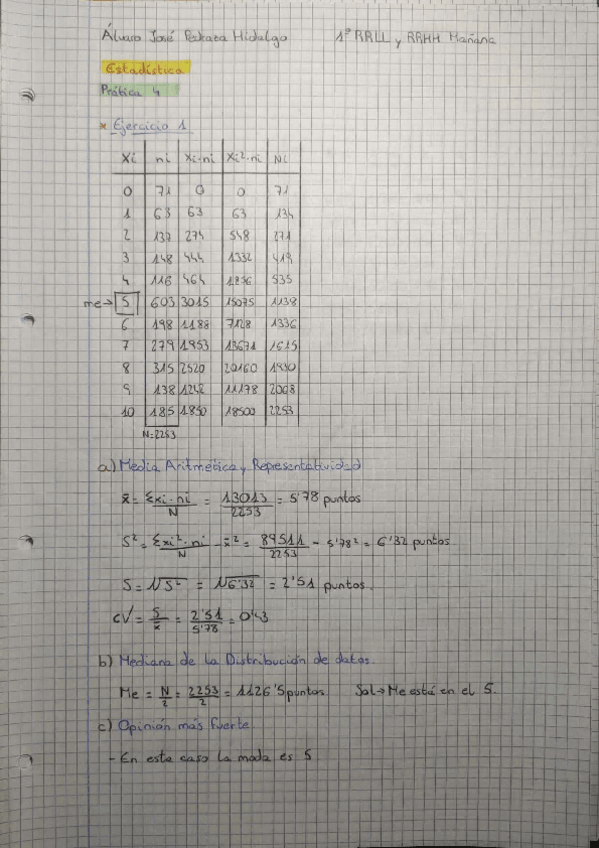 Álvaro José Pedraza Hidalgo 1º RRLL y RRHH Mañana
Estadística
Prática 4
* Ejercicio 1
Xi ni Xi·ni Xi²·ni Ni
0 71 0 0 71
1 63 63 63 134
2 137 274 548 271
3 148 444 1332 419
4 116 464 1856 535
me→ 5 603 3015 15075 1138
6 198 1188 7128 1336
7 279 1953 13671 1615
8 315 2520 20160 1930
9 138 1242 11178 2068
10 185 1850 18500 2253
N=2253
a) Media Aritmética y Representatividad
x̄ = Σxi·ni / N = 13013 / 2253 = 5'78 puntos
S² = Σxi²·ni / N - x̄² = 89511 / 2253 - 5'78² = 6'32 puntos
S = √S² = √6'32 = 2'51 puntos.
CV = S / x̄ = 2'51 / 5'78 = 0'43
b) Mediana de la Distribución de datos.
Me = N / 2 = 2253 / 2 = 1126'5 puntos Sol→ Me está en el 5.
c) Opinión más fuerte
- En este caso la moda es 5